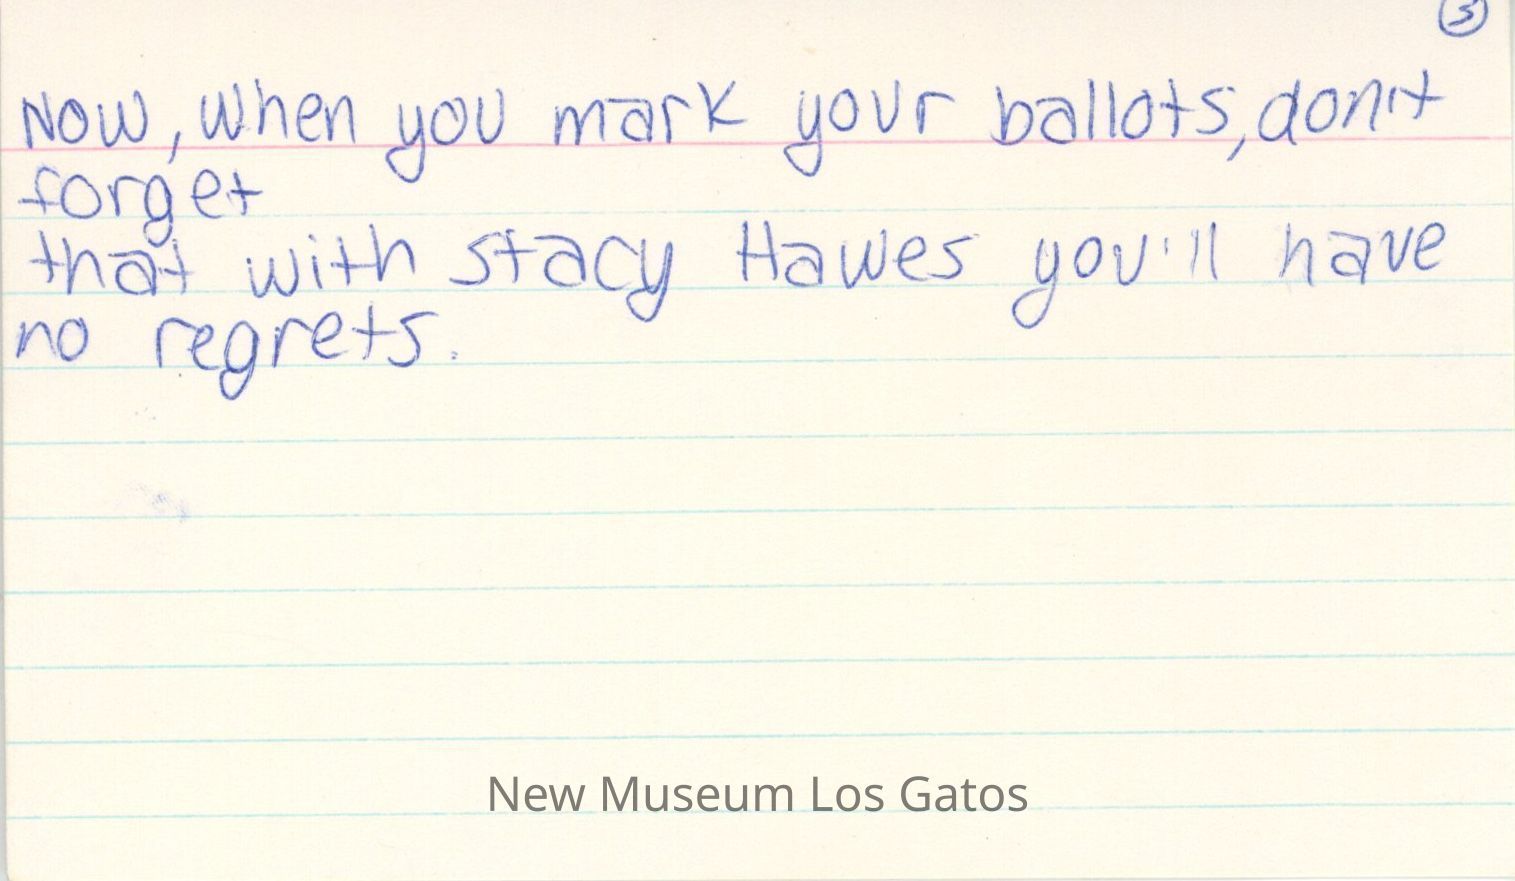 3
Now, when you mark your ballots, don't
forget
that with stacy Hawes you'll have
no regrets.
New Museum Los Gatos